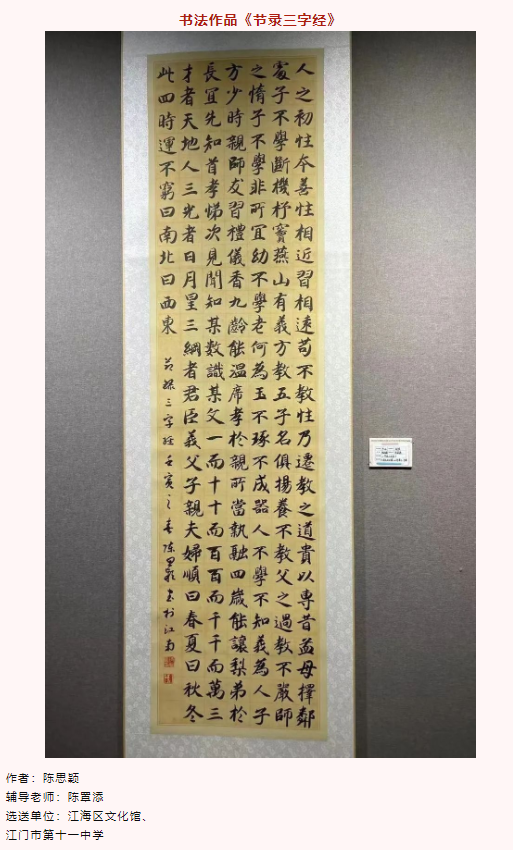 书法作品《节录三字经》
人之初性本善性相近習相遠苟不教性乃遷教之道貴以專昔孟母擇鄰
處子不學斷機杼竇燕山有義方教五子名俱揚養不教父之過教不嚴師
之惰子不學非所宜幼不學老何為玉不琢不成器人不學不知義為人子
方少時親師友習禮儀香九齡能溫席孝於親所當執融四歲能讓梨弟於
長宜先知首孝悌次見聞知某數識某文一而十十而百百而千千而萬三
才者天地人三光者日月星三綱者君臣義父子親夫婦順曰春夏曰秋冬
此四時運不窮曰南北曰西東
節錄三字經壬寅之春陳思穎書於江南
作者：陈思颖
辅导老师：陈覃添
选送单位：江海区文化馆、
江门市第十一中学